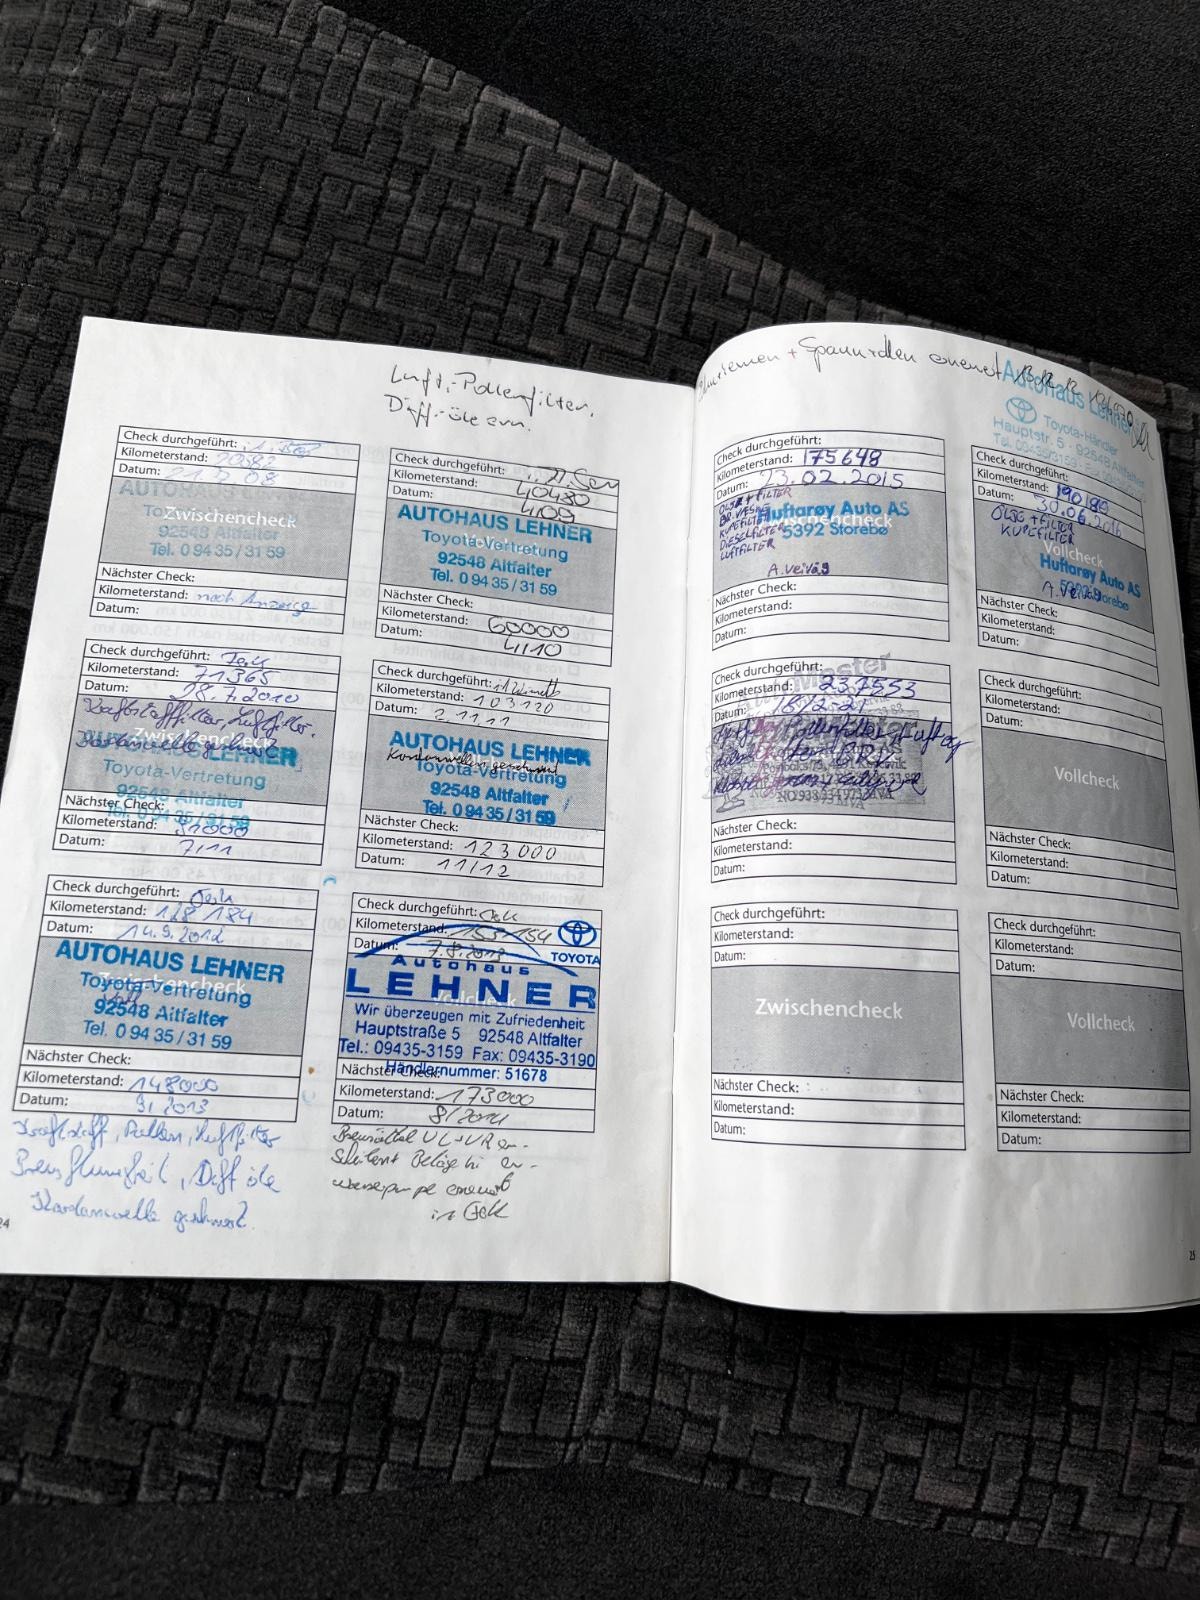 Luft-, Pollenfilter,
Diff.-öl ern.
Check durchgeführt:
Kilometerstand: 20582
Datum:
AUTOHAUS LEHNER
Zwischencheck
92548 Altfalter
Tel. 0 94 35 / 31 59
Nächster Check:
Kilometerstand: nach Anzeige
Datum:
Check durchgeführt:
Kilometerstand: 40480
Datum: 4109
AUTOHAUS LEHNER
Toyota-Vertretung
92548 Altfalter
Tel. 0 94 35 / 31 59
Nächster Check:
Kilometerstand: 60000
Datum: 4110
Check durchgeführt:
Kilometerstand: 71365
Datum: 28.7.2010
Kraftstofffilter, Luftfilter.
Kardanwelle geschmiert
Zwischencheck
AUTOHAUS LEHNER
Toyota-Vertretung
92548 Altfalter
Tel. 0 94 35 / 31 59
Nächster Check:
Kilometerstand: 91000
Datum: 7/11
Check durchgeführt:
Kilometerstand: 103120
Datum: 2.11.11
AUTOHAUS LEHNER
Kardanwellen geschmiert
Toyota-Vertretung
92548 Altfalter
Tel. 0 94 35 / 31 59
Nächster Check:
Kilometerstand: 123000
Datum: 11/12
Check durchgeführt:
Kilometerstand: 128184
Datum: 14.9.2012
AUTOHAUS LEHNER
Zwischencheck
Toyota-Vertretung
92548 Altfalter
Tel. 0 94 35 / 31 59
Nächster Check:
Kilometerstand: 148000
Datum: 9/2013
Kraftstoff, Pollen, Luftfilter
Bremsflüssigkeit, Diff öle
Kardanwelle geschmiert.
Check durchgeführt:
Kilometerstand: 155154
Datum: 7.8.2013
TOYOTA
Autohaus
LEHNER
Vollcheck
Wir überzeugen mit Zufriedenheit
Hauptstraße 5 92548 Altfalter
Tel.: 09435-3159 Fax: 09435-3190
Händlernummer: 51678
Nächster Check:
Kilometerstand: 173000
Datum: 8/2014
Bremssattel VL+VR er-
Scheiben+ Beläge hi er-
wasserpumpe erneuert
24
+ Spannrollen erneuert
Autohaus Lehner
Toyota-Händler
Hauptstr. 5 · 92548 Altfalter
Tel. 09435/3159
Check durchgeführt:
Kilometerstand: 175648
Datum: 23.02.2015
OLJE + FILTER
BR.VÆSKE
KUPEFILTER
DIESELFILTER
LUFTFILTER
Huftarøy Auto AS
Zwischencheck
5392 Storebø
Nächster Check:
Kilometerstand:
Datum:
Check durchgeführt:
Kilometerstand: 190189
Datum: 30.06.2016
OLJE + FILTER
KUPEFILTER
Vollcheck
Huftarøy Auto AS
5392 Storebø
Nächster Check:
Kilometerstand:
Datum:
Check durchgeführt:
Kilometerstand: 237553
Datum:
Nächster Check:
Kilometerstand:
Datum:
Check durchgeführt:
Kilometerstand:
Datum:
Vollcheck
Nächster Check:
Kilometerstand:
Datum:
Check durchgeführt:
Kilometerstand:
Datum:
Zwischencheck
Nächster Check:
Kilometerstand:
Datum:
Check durchgeführt:
Kilometerstand:
Datum:
Vollcheck
Nächster Check:
Kilometerstand:
Datum:
25